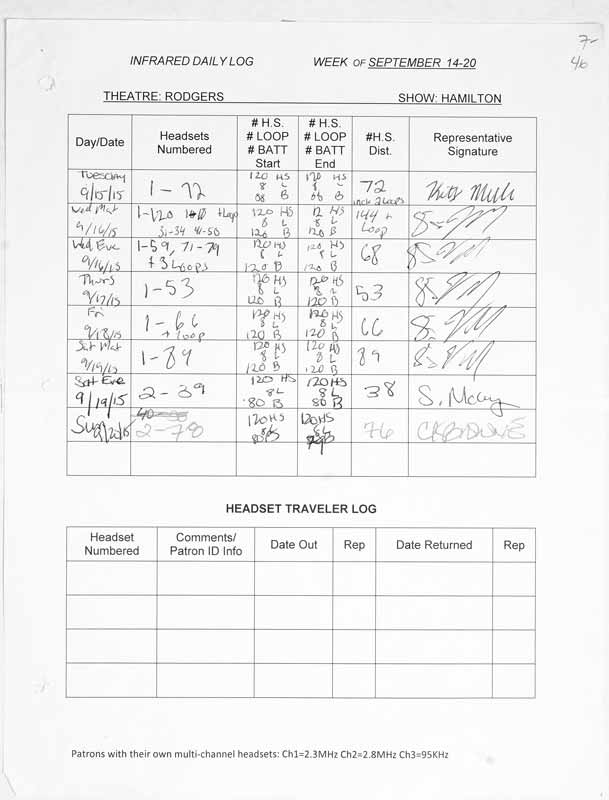 7-
46
INFRARED DAILY LOG WEEK OF SEPTEMBER 14-20
THEATRE: RODGERS SHOW: HAMILTON
Day/Date Headsets Numbered # H.S. # LOOP # BATT Start # H.S. # LOOP # BATT End #H.S. Dist. Representative Signature
Tuesday 9/15/15 1-72 120 HS 8 L 120 HS 8 L 72 incl 2 Loops
Wed Mat 9/16/15 1-120 + Loop 31-34 41-50 120 HS 8 L 120 B 12 HS 8 L 120 B 144 + Loop
Wed Eve 9/16/15 1-59, 71-79 + 3 Loops 120 HS 8 L 120 B 120 HS 8 L 120 B 68
Thurs 9/17/15 1-53 120 HS 8 L 120 B 120 HS 8 L 120 B 53
Fri 9/18/15 1-66 + loop 120 HS 8 L 120 B 120 HS 8 L 120 B 66
Sat Mat 9/19/15 1-89 120 HS 8 L 120 B 120 HS 8 L 120 B 89
Sat Eve 9/19/15 2-39 120 HS 8L 80 B 120 HS 8L 80 B 38 S. McCay
Sun 9/20/15 2-78 120HS 8L 120HS 8L 76
HEADSET TRAVELER LOG
Headset Numbered Comments/ Patron ID Info Date Out Rep Date Returned Rep
Patrons with their own multi-channel headsets: Ch1=2.3MHz Ch2=2.8MHz Ch3=95KHz